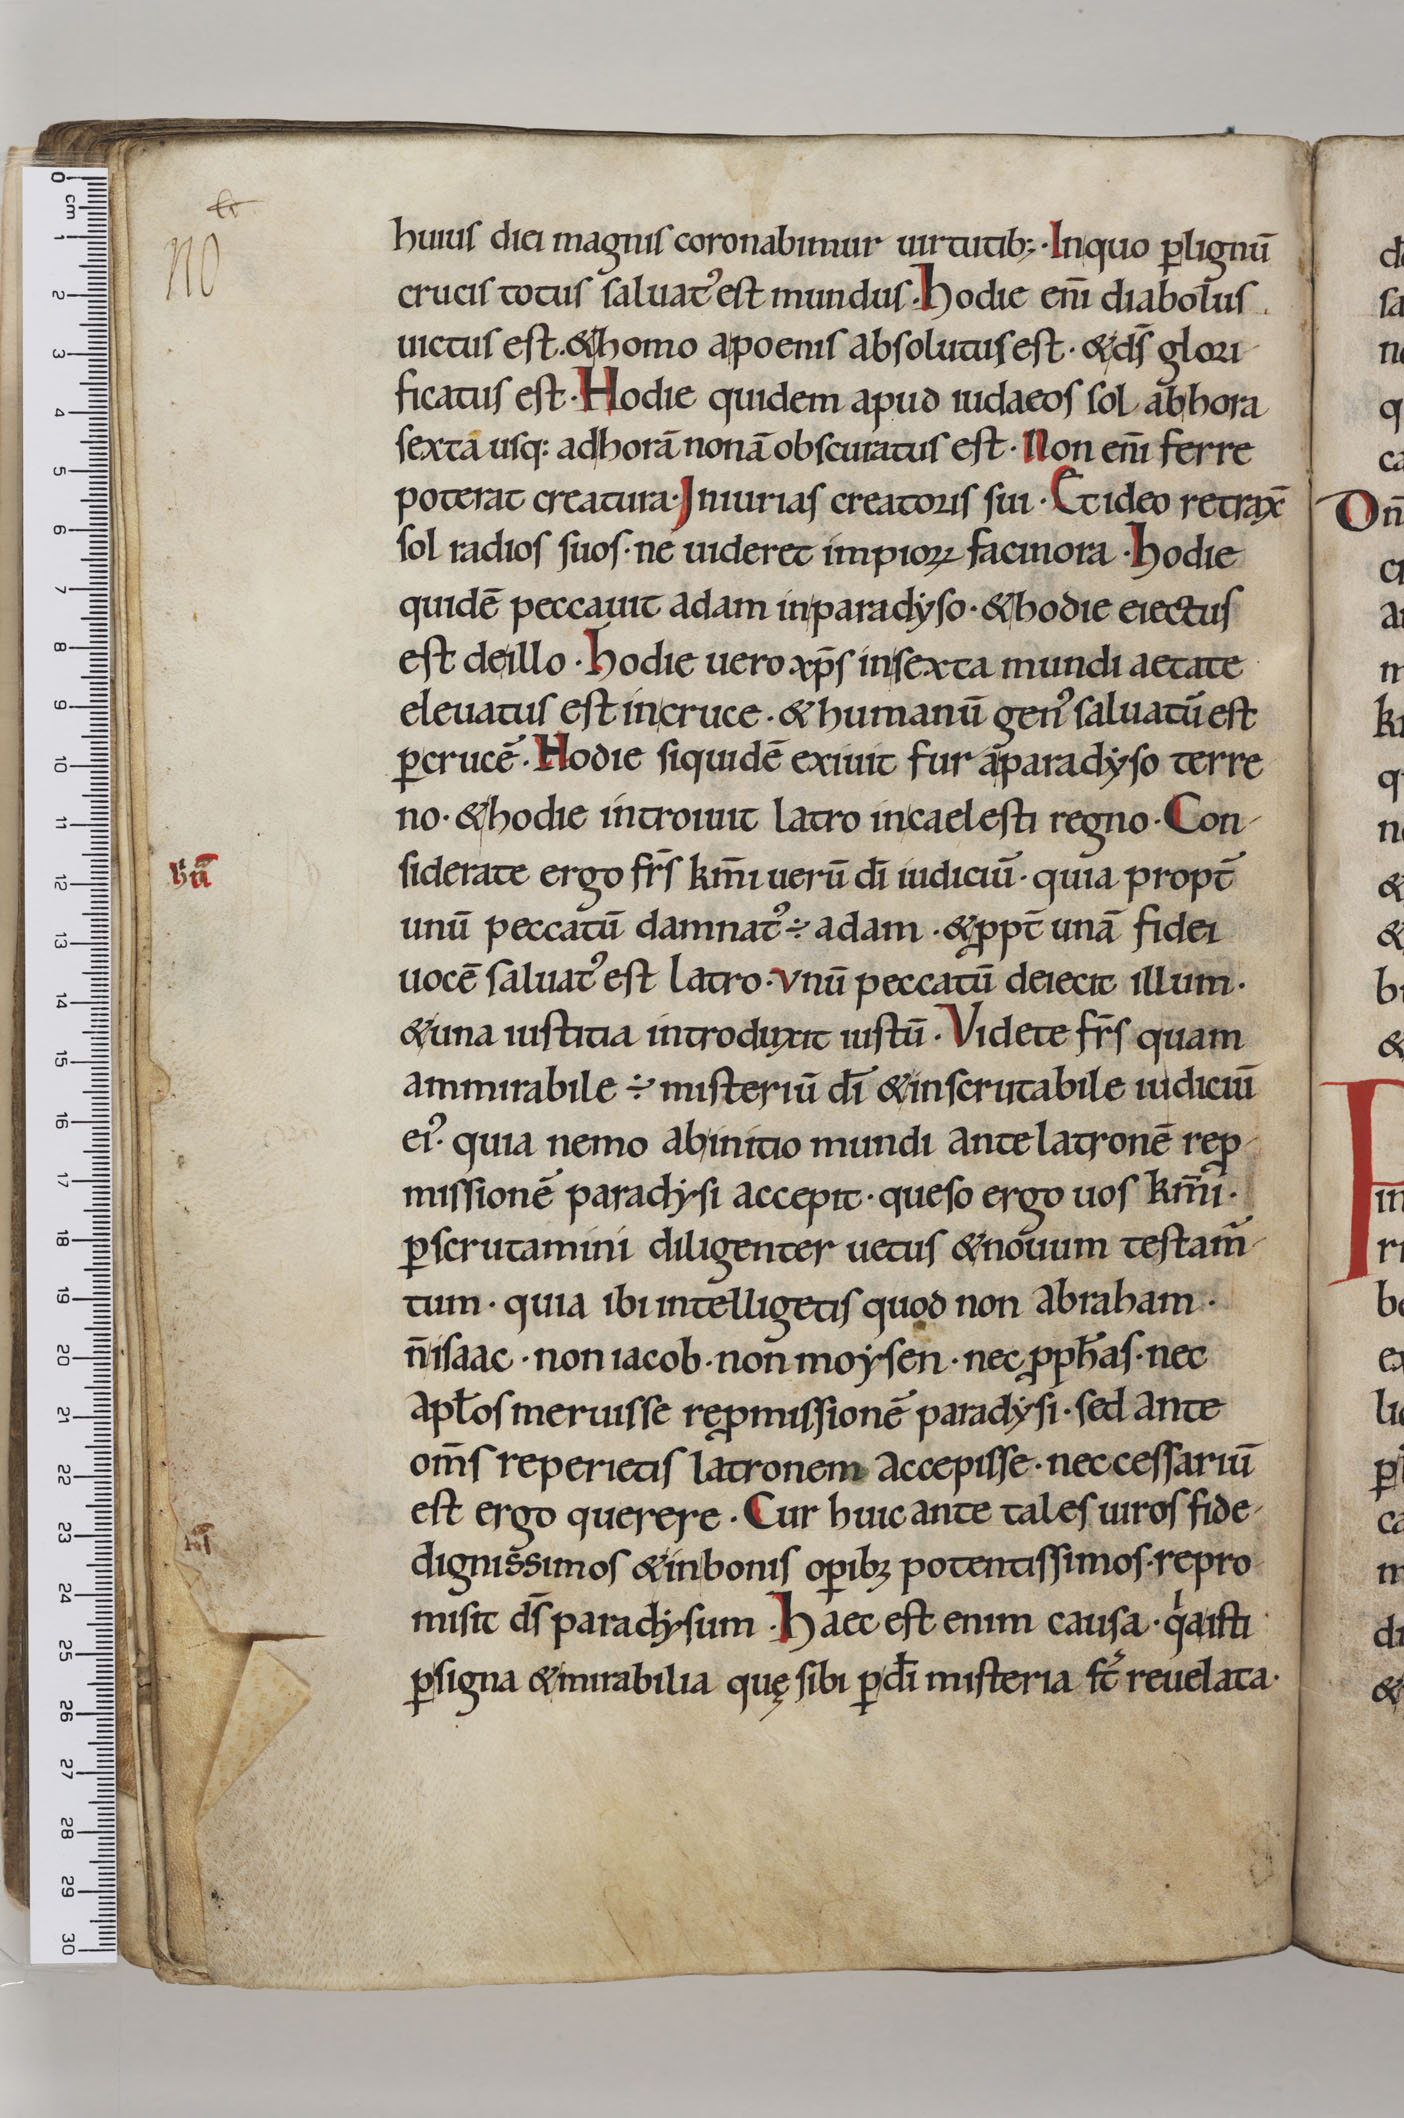 huius diei magnis coronabimur uirtutib; · In quo ꝑ lignū
crucis totus saluat᾽ est mundus · hodie eni̅ diabolus
uictus est · & homo a poenis absolutus est · & ds̅ glori
ficatus est · Hodie quidem apud iudaeos sol ab hora
sexta usq: ad horā nonā obscuratus est · Non eni̅ ferre
poterat creatura · Iniurias creatoris sui · Et ideo retrax̅
sol radios suos · ne uideret impioꝝ facinora · hodie
quidē peccauit adam in paradẏso · & hodie eiectus
est de illo · hodie uero xp̅s in sexta mundi aetate
eleuatus est in cruce · & humanū gen᾽ saluatū est
ꝑ crucē · Hodie siquidē exiuit fur a paradẏso terre
no · & hodie introiuit latro in caelesti regno · Con-
siderate ergo frs̅ km̅i uerū di̅ iudiciū · quia propt̅
unū peccatū damnat᾽ ÷ adam · & ꝓpt̅ unā fidei
uocē saluat᾽ est latro · Vnū peccatū deiecit illum ·
& una iustitia introduxit iustū · Videte frs̅ quam
ammirabile ÷ misteriū di̅ & inscrutabile iudiciū
ei᾽ · quia nemo ab initio mundi ante latronē reꝓ-
missionē paradẏsi accepit · queso ergo uos km̅i ·
ꝑscrutamini diligenter uetus & nouum testam̅-
tum · quia ibi intelligetis quod non abraham ·
n̅ isaac · non iacob · non moẏsen · nec ꝓph̅as · nec
apl̅os meruisse reꝓmissionē paradẏsi · sed ante
om̅s reperietis latronem accepisse · neccessariū
est ergo querere · Cur huic ante tales uiros fide-
dignissimos & in bonis oꝑibꝫ potentissimos · repro
misit ds̅ paradẏsum · haec est enim causa · q̍a isti
ꝑ signa & mirabilia quę sibi ꝑ di̅ misteria st̅ reuelata ·